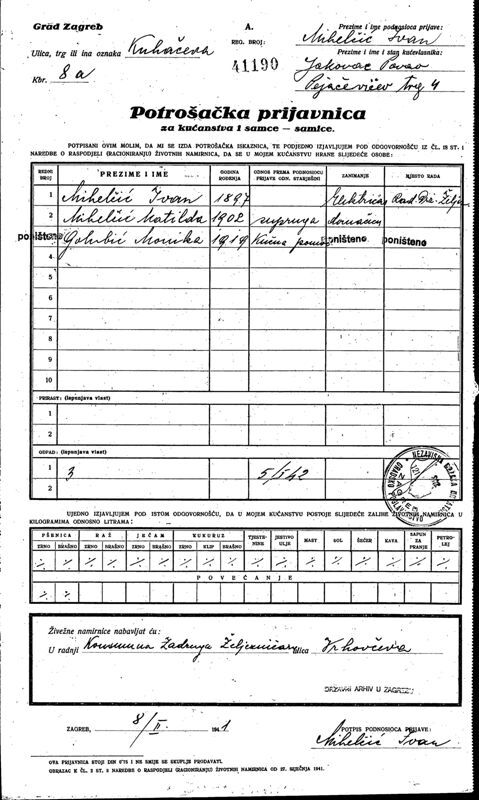 Grad Zagreb
Ulica, trg ili ina oznaka Kuhačeva
Kbr. 8a
A.
REG. BROJ:
41190
Prezime i ime podnosioca prijave:
Mihelčić Ivan
Prezime i ime i stan kućevlasnika:
Jakovac Pavao
Pejačevićev trg 4
Potrošačka prijavnica
za kućanstva i samce — samice.
POTPISANI OVIM MOLIM, DA MI SE IZDA POTROŠAČKA ISKAZNICA, TE PODJEDNO IZJAVLJUJEM POD ODGOVORNOŠĆU IZ ČL. 18 ST. 1
NAREDBE O RASPODJELI (RACIONIRANJU) ŽIVOTNIH NAMIRNICA, DA SE U MOJEM KUĆANSTVU HRANE SLIJEDEĆE OSOBE:
REDNI BROJ PREZIME I IME GODINA ROĐENJA ODNOS PREMA PODNOSIOCU PRIJAVE ODN. STARJEŠINI ZANIMANJE MJESTO RADA
1 Mihelčić Ivan 1897 Električar Rad. Drž. Želj.
2 Mihelčić Matilda 1902 supruga domaćica
poništeno Golubić Monika 1919 Kućna pomoć poništeno poništeno
4
5
6
7
8
9
10
PRIRAST: (Ispunjava vlast)
1
2
OTPAD: (Ispunjava vlast)
1 3 5/II 42
2
NEZAVISNA DRŽAVA HRVATSKA
UJEDNO IZJAVLJUJEM POD ISTOM ODGOVORNOŠĆU, DA U MOJEM KUĆANSTVU POSTOJE SLIJEDEĆE ZALIHE ŽIVOTNIH NAMIRNICA U
KILOGRAMIMA ODNOSNO LITRAMA:
PŠENICA RAŽ JEČAM KUKURUZ TJESTENINE JESTIVO ULJE MAST SOL ŠEĆER KAVA SAPUN ZA PRANJE PETROLEJ
ZRNO BRAŠNO ZRNO BRAŠNO ZRNO BRAŠNO ZRNO KLIP BRAŠNO
POVEĆANJE
Živežne namirnice nabavljat ću:
U radnji Konsumna Zadruga Željezničara ulica Vrhovčeva
DRŽAVNI ARHIV U ZAGREBU
ZAGREB, 8/II. 1941
POTPIS PODNOSIOCA PRIJAVE:
Mihelčić Ivan
OVA PRIJAVNICA STOJI DIN 0'15 I NE SMIJE SE SKUPLJE PRODAVATI.
OBRAZAC K ČL. 2 ST. 2 NAREDBE O RASPODJELI (RACIONIRANJU) ŽIVOTNIH NAMIRNICA OD 27. SIJEČNJA 1941.